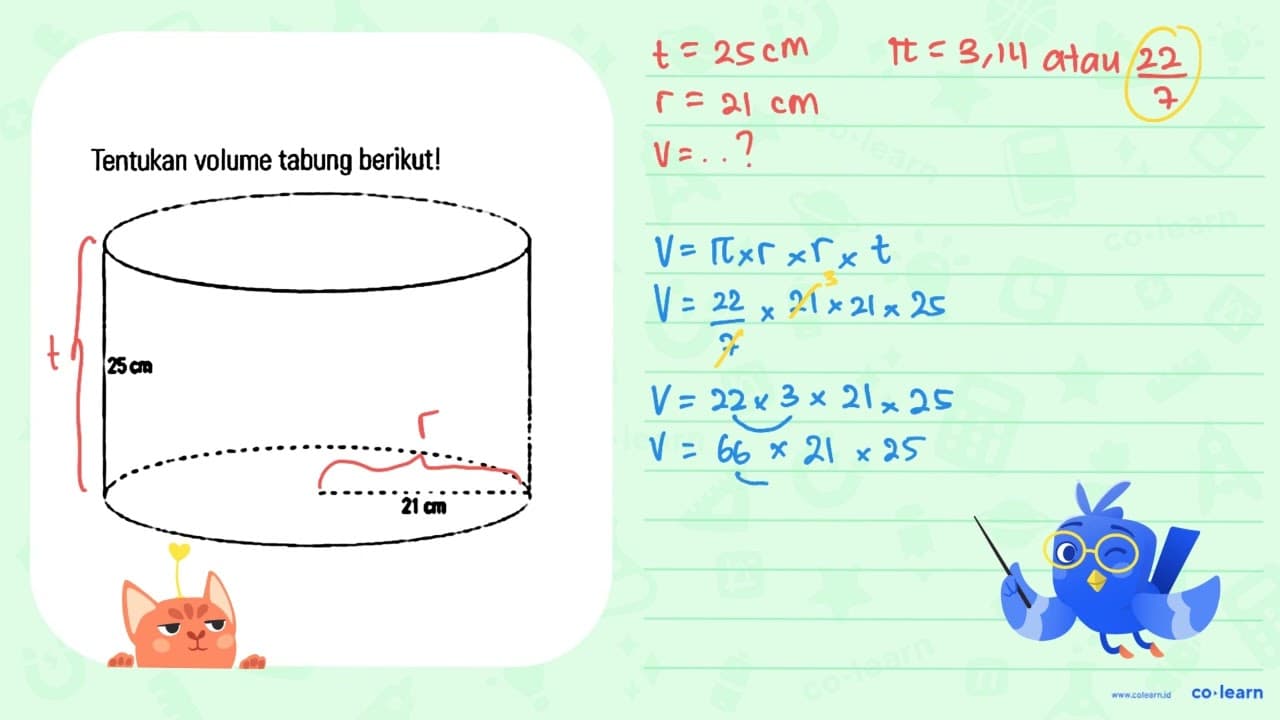 Tentukan volume tabung berikut!
t
25 cm
r
21 cm
t = 25 cm π = 3,14 atau 22/7
r = 21 cm
V = . . ?
V = π × r × r × t
V = 22/7 × 21 3 × 21 × 25
V = 22 × 3 × 21 × 25
V = 66 × 21 × 25
www.colearn.id co·learn